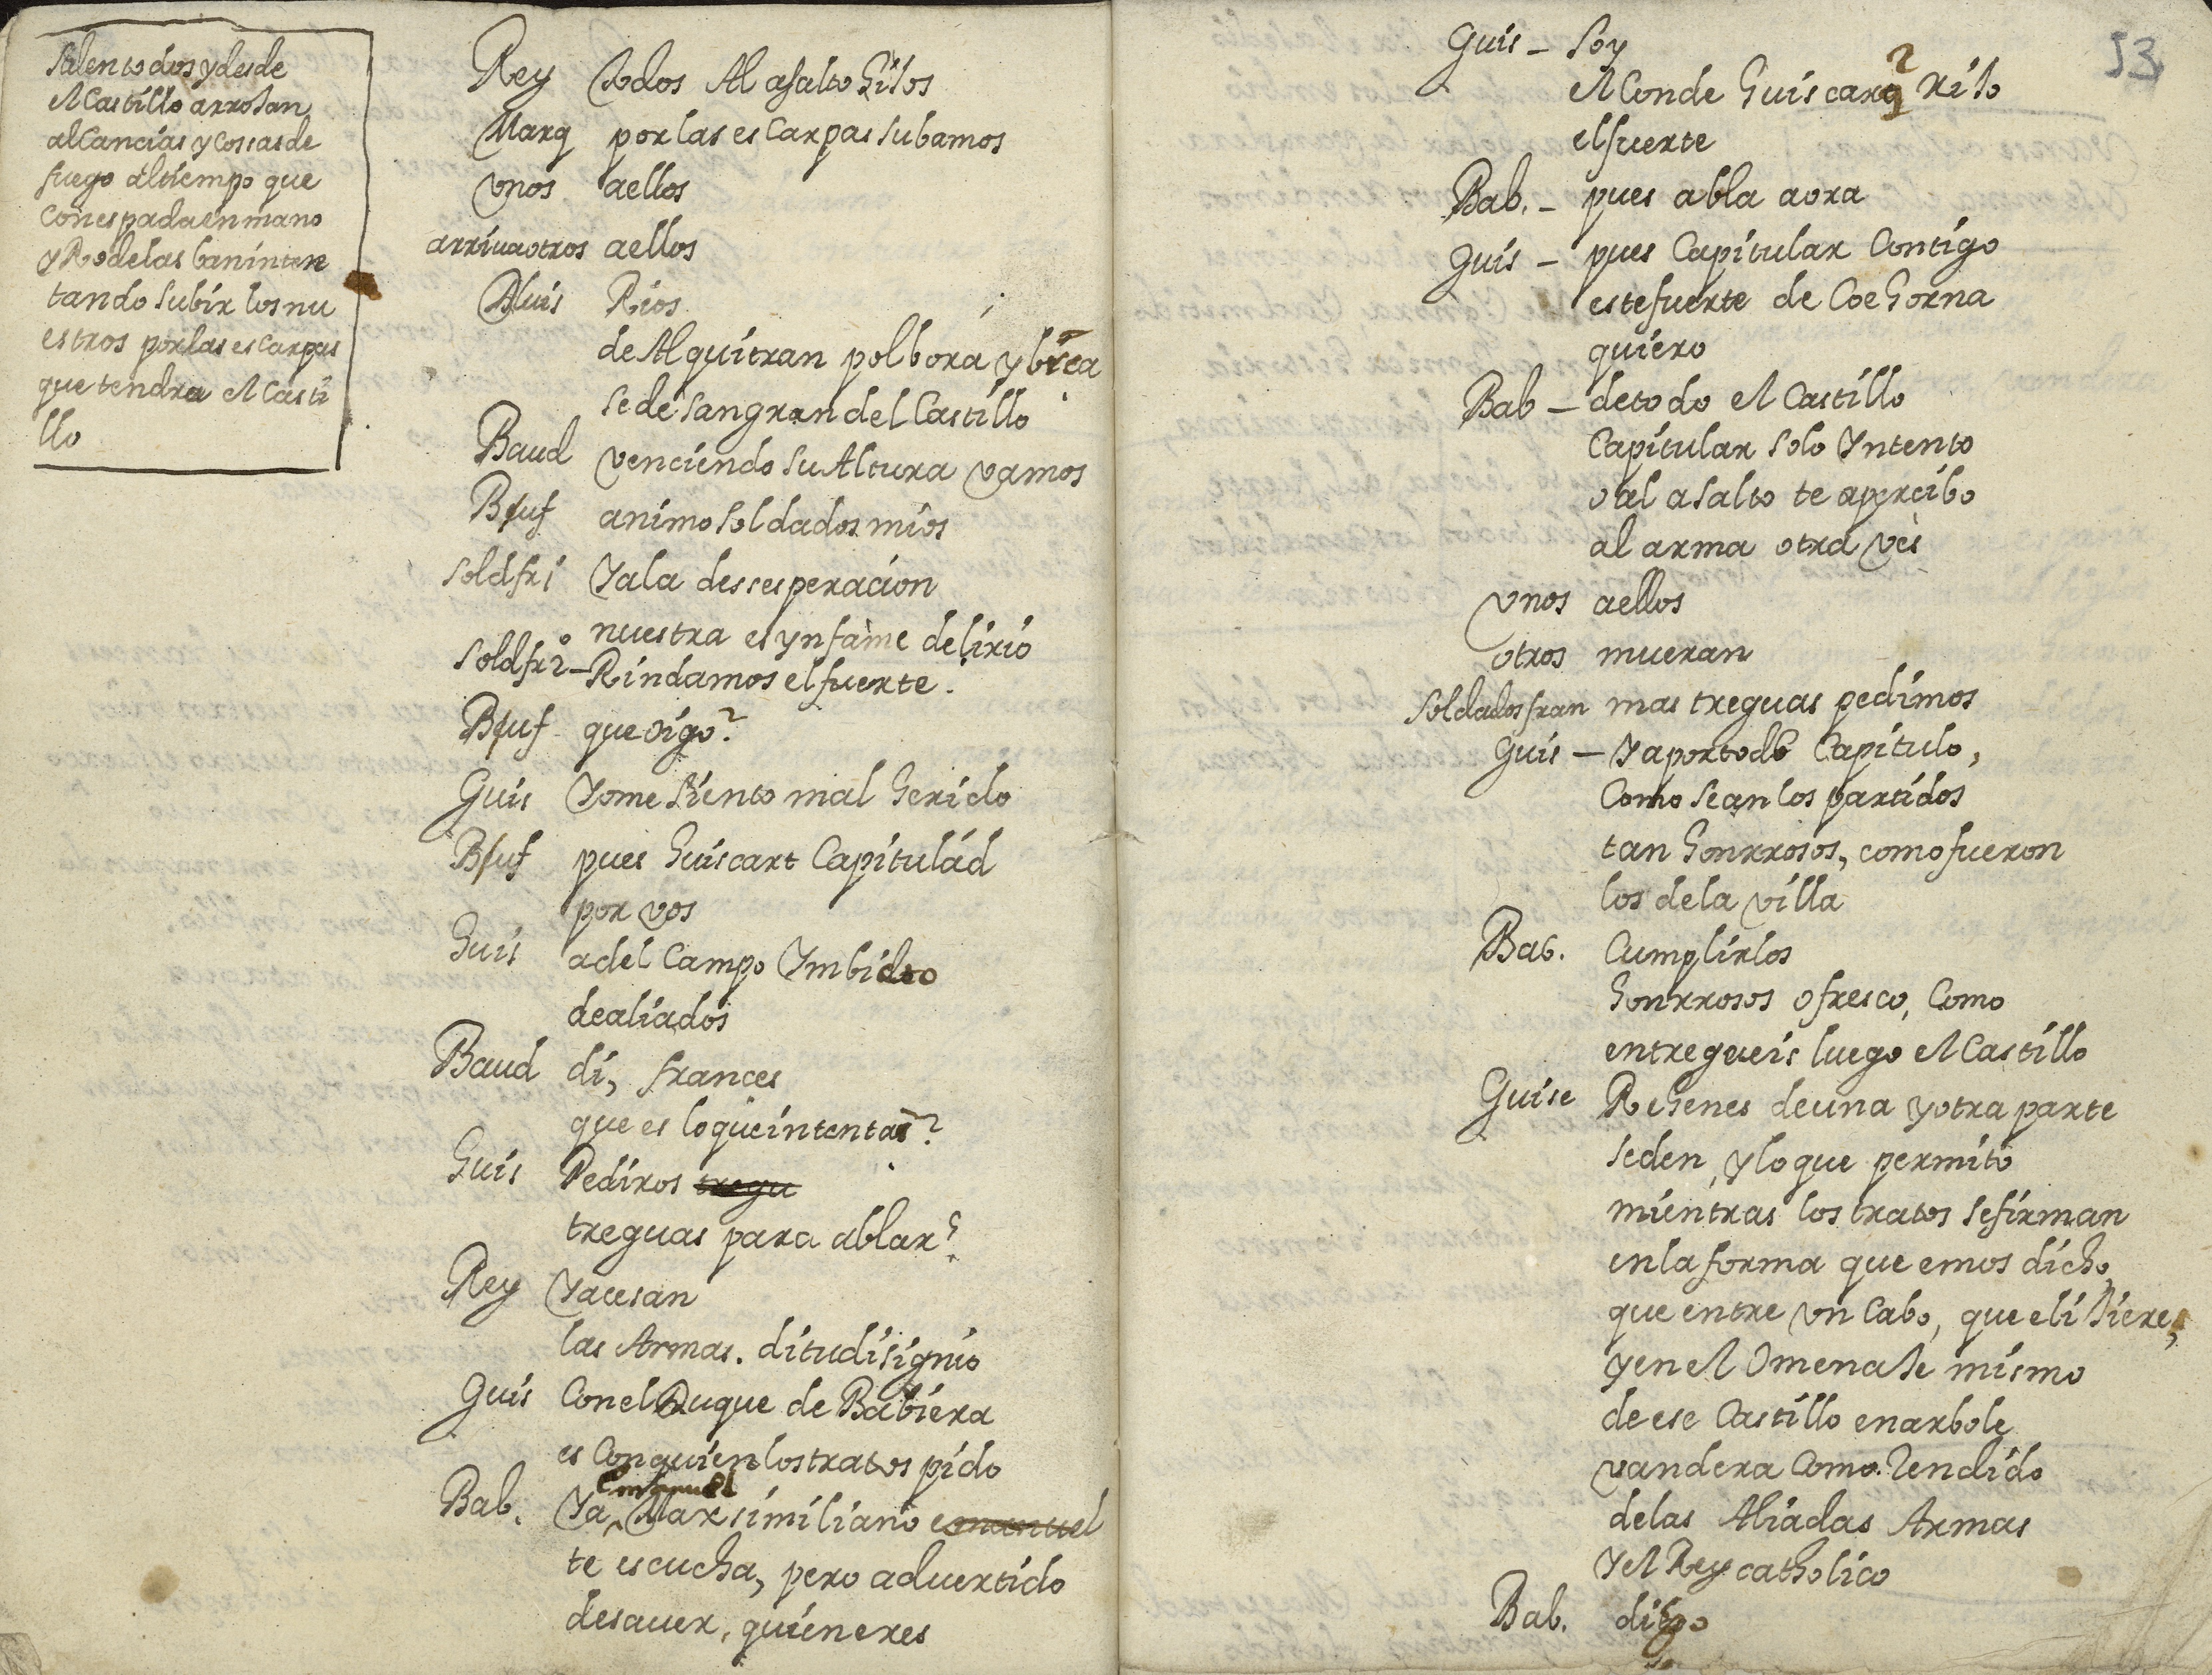 Salen todos y desde
el Castillo arrojan
alcancias y cossas de
fuego al tiempo que
con espada en mano
y Rodelas ban inten
tando subir los nu
estros por las escarpas
que tendra el Casti
llo
Rey todos Al asalto hijos
Marq por las escarpas subamos
vnos a ellos
arriua otros a ellos
Rios
de Alquitran polbora y brea
se desangran del Castillo
Baud venciendo su Altura vamos
Bfuf animo soldados mios
sold fr 1 Ya la dessesperacion
nuestra es ynfame delirio
sold fr 2º - Rindamos el fuerte.
Bfuf que oigo?
Guis Yo me siento mal herido
Bfuf pues Guiscart Capitulad
por vos
Guis a del Campo Ymbicto
de aliados
Baud di, frances
que es lo que intentas?
Guis Pediros tregu
treguas para ablar?
Rey Ya cesan
las Armas. di tu disignio
Guis Con el Duque de Babiera
es Con quien los tratos pido
Emanuel
Bab. Ya ^ Maxsimiliano emanuel
te escucha, pero aduertido
de sauer, quien eres
53
Guis - Soy
el Conde Guiscar q rijo
el fuerte
Bab. - pues abla aora
Guis - pues Capitular Contigo
este fuerte de Coehorna
quiero
Bab - de todo el Castillo
Capitular solo Yntento
o al asalto te apercibo
al arma otra ves
vnos a ellos
otros mueran
Soldados fran mas treguas pedimos
Guis - Ya por todo Capitulo,
Como sean los partidos
tan honrrosos, como fueron
los de la villa
Bab. Cumplirlos
honrrosos ofresco, Como
entregueis luego el Castillo
Guise Rehenes de una y otra parte
se den, y lo que permito
mientras los tratos se firman
en la forma que emos dicho,
que entre vn Cabo, que elijiere,
y en el Omenaje mismo
de ese Castillo enarbole
vandera Como Rendido
de las Aliadas Armas
Y el Rey catholico
Bab. digo